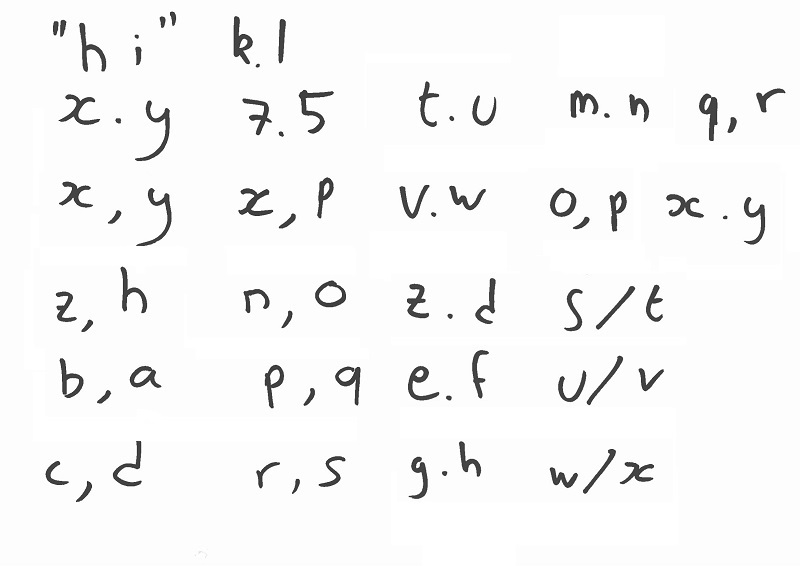 "hi" k.l
x.y 7.5 t.u m.n q,r
x,y x,p v.w o,p x.y
z,h n,o z.d s/t
b,a p,q e.f u/v
c,d r,s g.h w/x